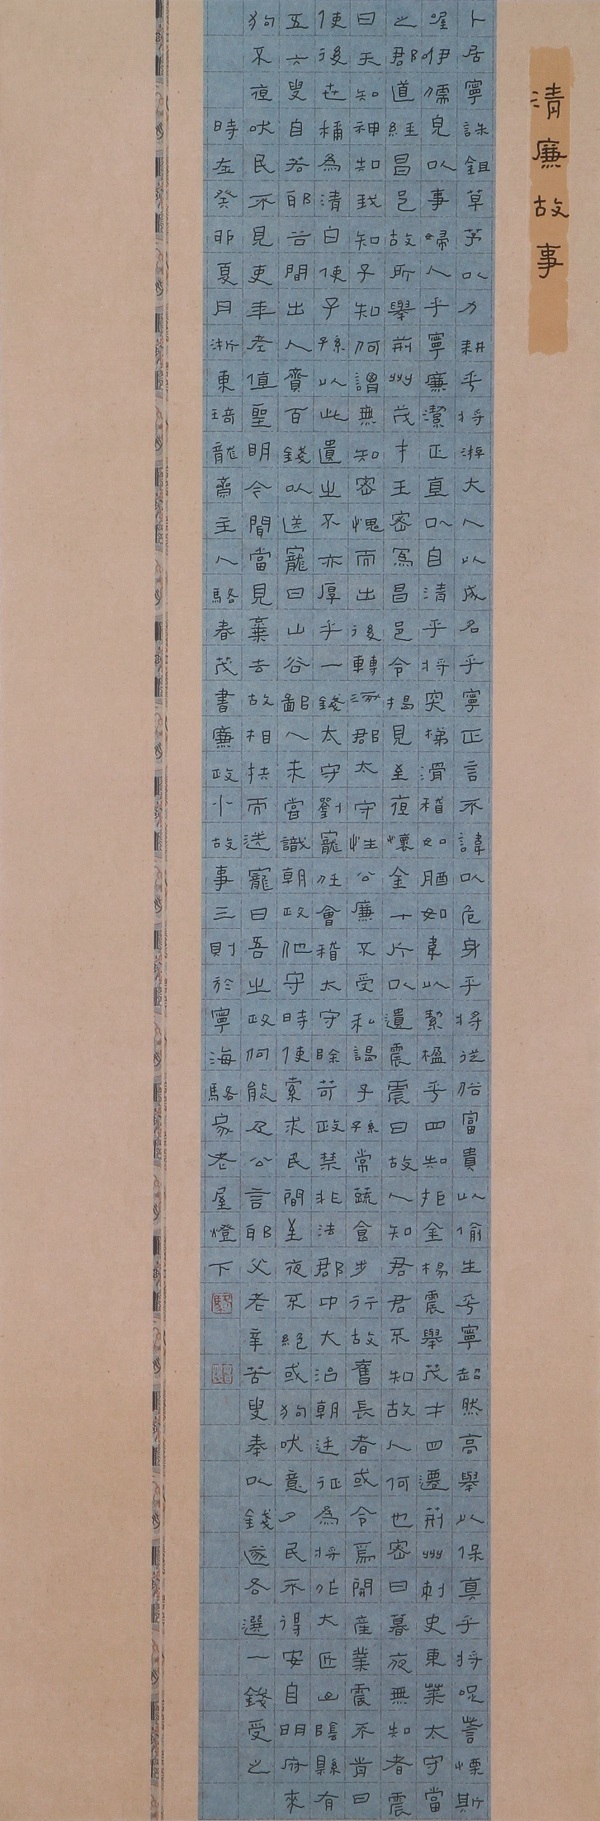 清廉故事
卜居寧誅鉏草茅以力耕乎將游大人以成名乎寧正言不諱以危身乎將從俗富貴以偷生乎寧超然高舉以保真乎將哫訾慄斯
喔咿儒兒以事婦人乎寧廉潔正直以自清乎將突梯滑稽如脂如韋以絜楹乎四知拒金楊震舉茂才四遷荊州刺史東萊太守當
之郡道經昌邑故所舉荊州茂才王密為昌邑令揭見至夜懷金十斤以遺震震曰故人知君君不知故人何也密曰暮夜無知者震
曰天知神知我知子知何謂無知密愧而出後轉涿郡太守性公廉不受私謁子孫常蔬食步行故舊長者或令為開産業震不肯曰
使後世稱為清白使子孫以此遺之不亦厚乎一錢太守劉寵任會稽太守除苛政禁非法郡中大治朝廷征為將作大匠山陰縣有
五六叟自若耶谷間出人賫百錢以送寵曰山谷鄙人未嘗識朝政他守時使索求民間至夜不絕或狗吠意夕民不得安自明府來
狗不夜吠民不見吏年老值聖明今間當見棄去故相扶而送寵曰吾之政何能及公言耶父老辛苦叟奉以錢遂各選一錢受之
時在癸卯夏月浙東琦龍齋主人駱春茂書廉政小故事三則於寧海駱家老屋燈下